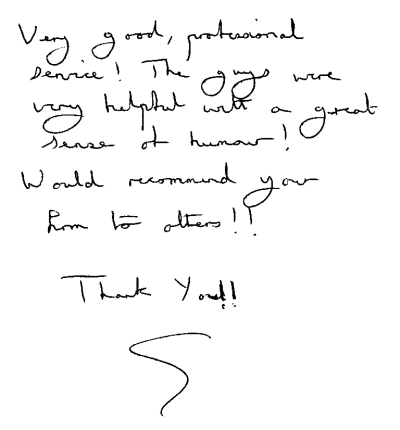 Very good, professional
service! The guys were
very helpful with a great
sense of humour!
Would recommend your
firm to others!!
Thank You!!